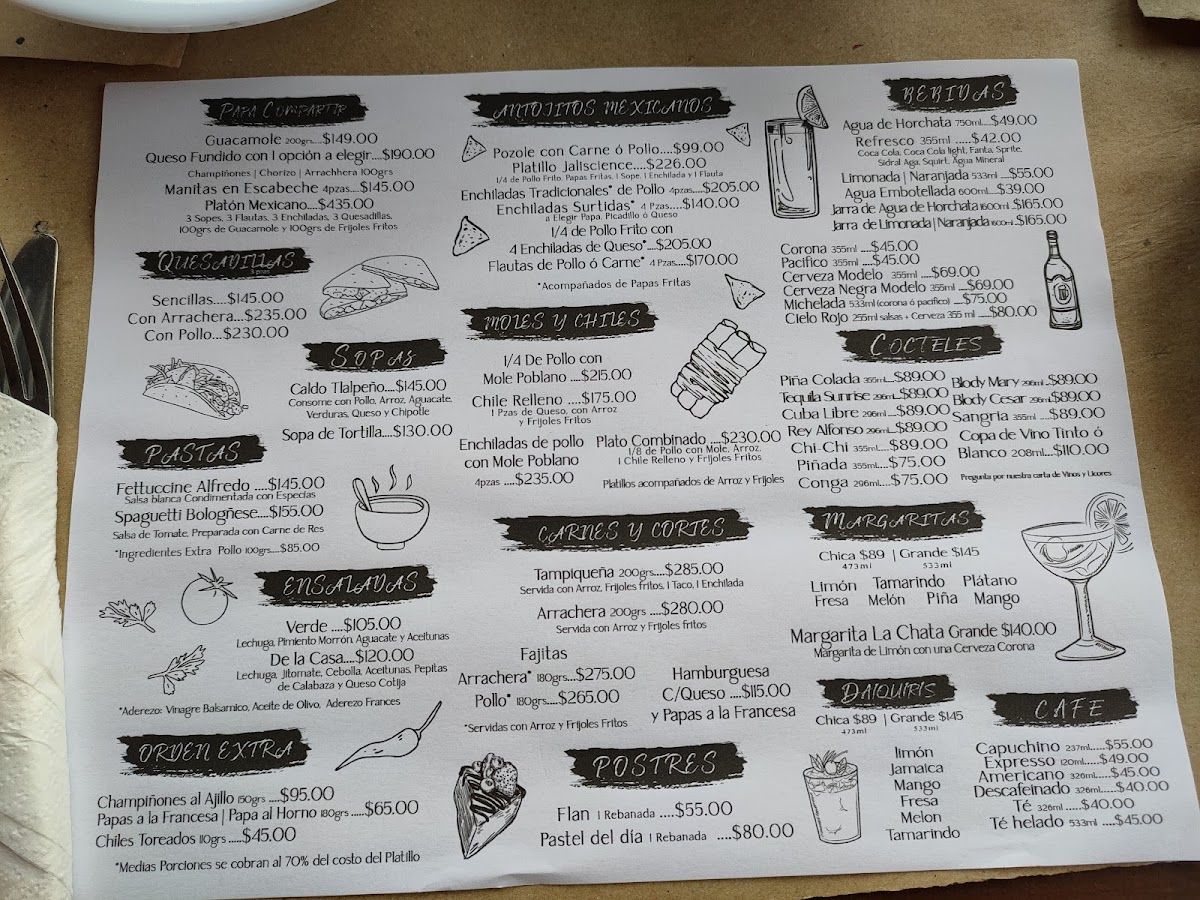 PARA COMPARTIR
Guacamole 200grs....$149.00
Queso Fundido con 1 opción a elegir....$190.00
Champiñones | Chorizo | Arrachhera 100grs
Manitas en Escabeche 4pzas....$145.00
Platón Mexicano....$435.00
3 Sopes, 3 Flautas, 3 Enchiladas, 3 Quesadillas,
100grs de Guacamole y 100grs de Frijoles Fritos
QUESADILLAS
3 pzas
Sencillas....$145.00
Con Arrachera...$235.00
Con Pollo...$230.00
SOPAS
Caldo Tlalpeño....$145.00
Consome con Pollo, Arroz, Aguacate,
Verduras, Queso y Chipotle
Sopa de Tortilla....$130.00
PASTAS
Fettuccine Alfredo ....$145.00
Salsa blanca Condimentada con Especias
Spaguetti Bologñese....$155.00
Salsa de Tomate, Preparada con Carne de Res
*Ingredientes Extra Pollo 100grs....$85.00
ENSALADAS
Verde ....$105.00
Lechuga, Pimiento Morrón, Aguacate y Aceitunas
De la Casa....$120.00
Lechuga, Jitomate, Cebolla, Aceitunas, Pepitas
de Calabaza y Queso Cotija
*Aderezo: Vinagre Balsamico, Aceite de Olivo, Aderezo Frances
ORDEN EXTRA
Champiñones al Ajillo 150grs ....$95.00
Papas a la Francesa | Papa al Horno 180grs ....$65.00
Chiles Toreados 110grs ......$45.00
*Medias Porciones se cobran al 70% del costo del Platillo
ANTOJITOS MEXICANOS
Pozole con Carne ó Pollo....$99.00
Platillo Jaliscience....$226.00
1/4 de Pollo Frito, Papas Fritas, 1 Sope, 1 Enchilada y 1 Flauta
Enchiladas Tradicionales* de Pollo 4pzas....$205.00
Enchiladas Surtidas* 4 Pzas....$140.00
a Elegir Papa, Picadillo ó Queso
1/4 de Pollo Frito con
4 Enchiladas de Queso*....$205.00
Flautas de Pollo ó Carne* 4 Pzas....$170.00
*Acompañados de Papas Fritas
MOLES Y CHILES
1/4 De Pollo con
Mole Poblano ....$215.00
Chile Relleno ....$175.00
1 Pzas de Queso, con Arroz
y Frijoles Fritos
Enchiladas de pollo
con Mole Poblano
4pzas ....$235.00
Plato Combinado ....$230.00
1/8 de Pollo con Mole, Arroz,
1 Chile Relleno y Frijoles Fritos
Platillos acompañados de Arroz y Frijoles
CARNES Y CORTES
Tampiqueña 200grs....$285.00
Servida con Arroz, Frijoles fritos, 1 Taco, 1 Enchilada
Arrachera 200grs ....$280.00
Servida con Arroz y Frijoles fritos
Fajitas
Arrachera* 180grs....$275.00
Pollo* 180grs....$265.00
*Servidas con Arroz y Frijoles Fritos
Hamburguesa
C/Queso ....$115.00
y Papas a la Francesa
POSTRES
Flan 1 Rebanada ....$55.00
Pastel del día 1 Rebanada ....$80.00
BEBIDAS
Agua de Horchata 750ml....$49.00
Refresco 355ml .....$42.00
Coca Cola, Coca Cola light, Fanta, Sprite,
Sidral Aga, Squirt, Agua Mineral
Limonada | Naranjada 533ml ....$55.00
Agua Embotellada 600ml...$39.00
Jarra de Agua de Horchata 1600ml...$165.00
Jarra de Limonada | Naranjada 1600ml...$165.00
Corona 355ml ....$45.00
Pacifico 355ml ....$45.00
Cerveza Modelo 355ml ....$69.00
Cerveza Negra Modelo 355ml ....$69.00
Michelada 533ml (corona ó pacifico) ....$75.00
Cielo Rojo 255ml salsas + Cerveza 355 ml .....$80.00
COCTELES
Piña Colada 355ml...$89.00
Tequila Sunrise 296ml...$89.00
Cuba Libre 296ml....$89.00
Rey Alfonso 296ml...$89.00
Chi-Chi 355ml....$89.00
Piñada 355ml....$75.00
Conga 296ml....$75.00
Blody Mary 296ml..$89.00
Blody Cesar 296ml$89.00
Sangria 355ml ....$89.00
Copa de Vino Tinto ó
Blanco 208ml...$110.00
Pregunta por nuestra carta de Vinos y Licores
MARGARITAS
Chica $89 | Grande $145
473ml 533ml
Limón Tamarindo Plátano
Fresa Melón Piña Mango
Margarita La Chata Grande $140.00
Margarita de Limón con una Cerveza Corona
DAIQUIRIS
Chica $89 | Grande $145
473ml 533ml
limón
Jamaica
Mango
Fresa
Melon
Tamarindo
CAFE
Capuchino 237ml.....$55.00
Expresso 120ml....$49.00
Americano 326ml....$45.00
Descafeinado 326ml....$40.00
Té 326ml .....$40.00
Té helado 533ml ....$45.00